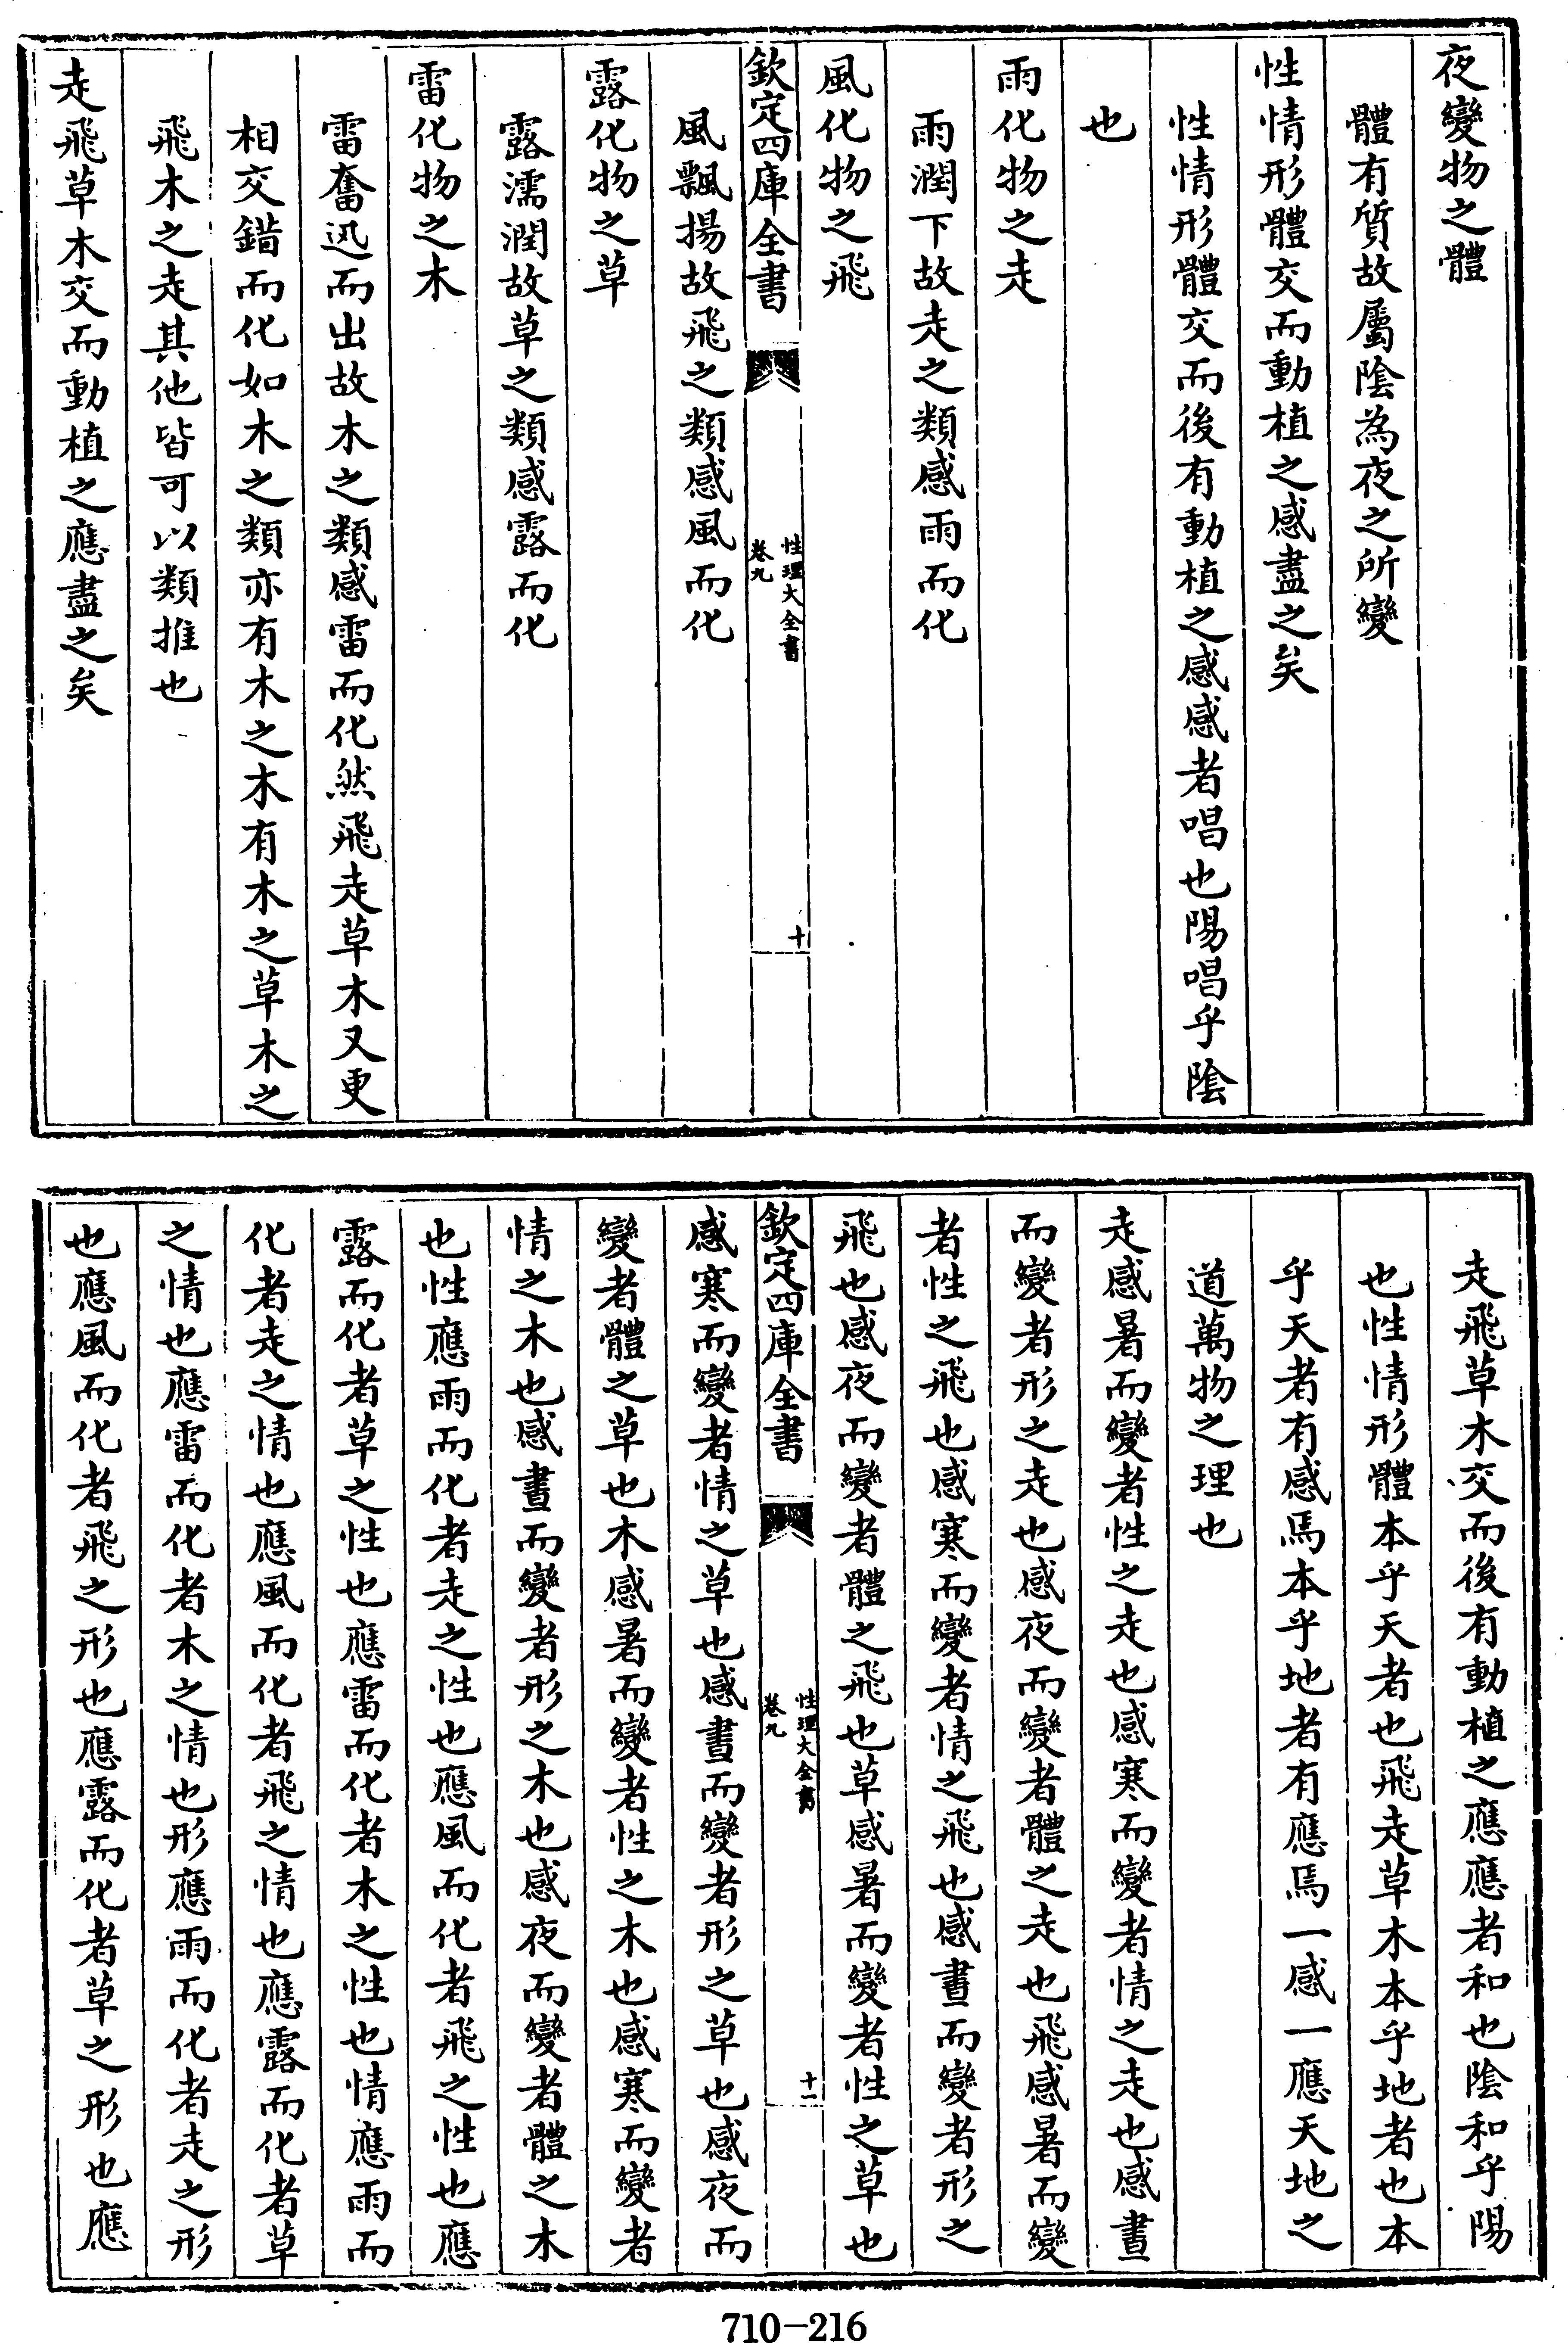 夜變物之體
體有質故屬陰為夜之所變
性情形體交而動植之感盡之矣
性情形體交而後有動植之感感者唱也陽唱乎陰
也
雨化物之走
雨潤下故走之類感雨而化
風化物之飛
欽定四庫全書
性理大全書
卷九
十
風飄揚故飛之類感風而化
露化物之草
露濡潤故草之類感露而化
雷化物之木
雷奮迅而出故木之類感雷而化然飛走草木又更
相交錯而化如木之類亦有木之木有木之草木之
飛木之走其他皆可以類推也
走飛草木交而動植之應盡之矣
走飛草木交而後有動植之應應者和也陰和乎陽
也性情形體本乎天者也飛走草木本乎地者也本
乎天者有感焉本乎地者有應焉一感一應天地之
道萬物之理也
走感暑而變者性之走也感寒而變者情之走也感晝
而變者形之走也感夜而變者體之走也飛感暑而變
者性之飛也感寒而變者情之飛也感晝而變者形之
飛也感夜而變者體之飛也草感暑而變者性之草也
欽定四庫全書
性理大全書
卷九
十一
感寒而變者情之草也感晝而變者形之草也感夜而
變者體之草也木感暑而變者性之木也感寒而變者
情之木也感晝而變者形之木也感夜而變者體之木
也性應雨而化者走之性也應風而化者飛之性也應
露而化者草之性也應雷而化者木之性也情應雨而
化者走之情也應風而化者飛之情也應露而化者草
之情也應雷而化者木之情也形應雨而化者走之形
也應風而化者飛之形也應露而化者草之形也應
710-216